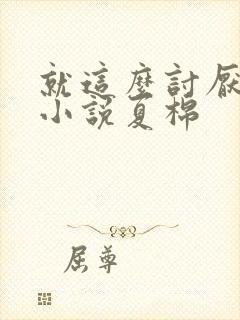 就這麼討厭
小說夏棉
屈尊